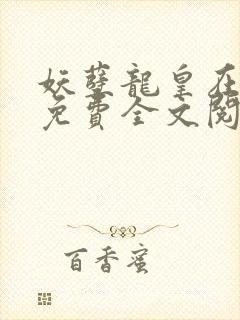 妖孽龍皇在
免費全文閱
百香蜜